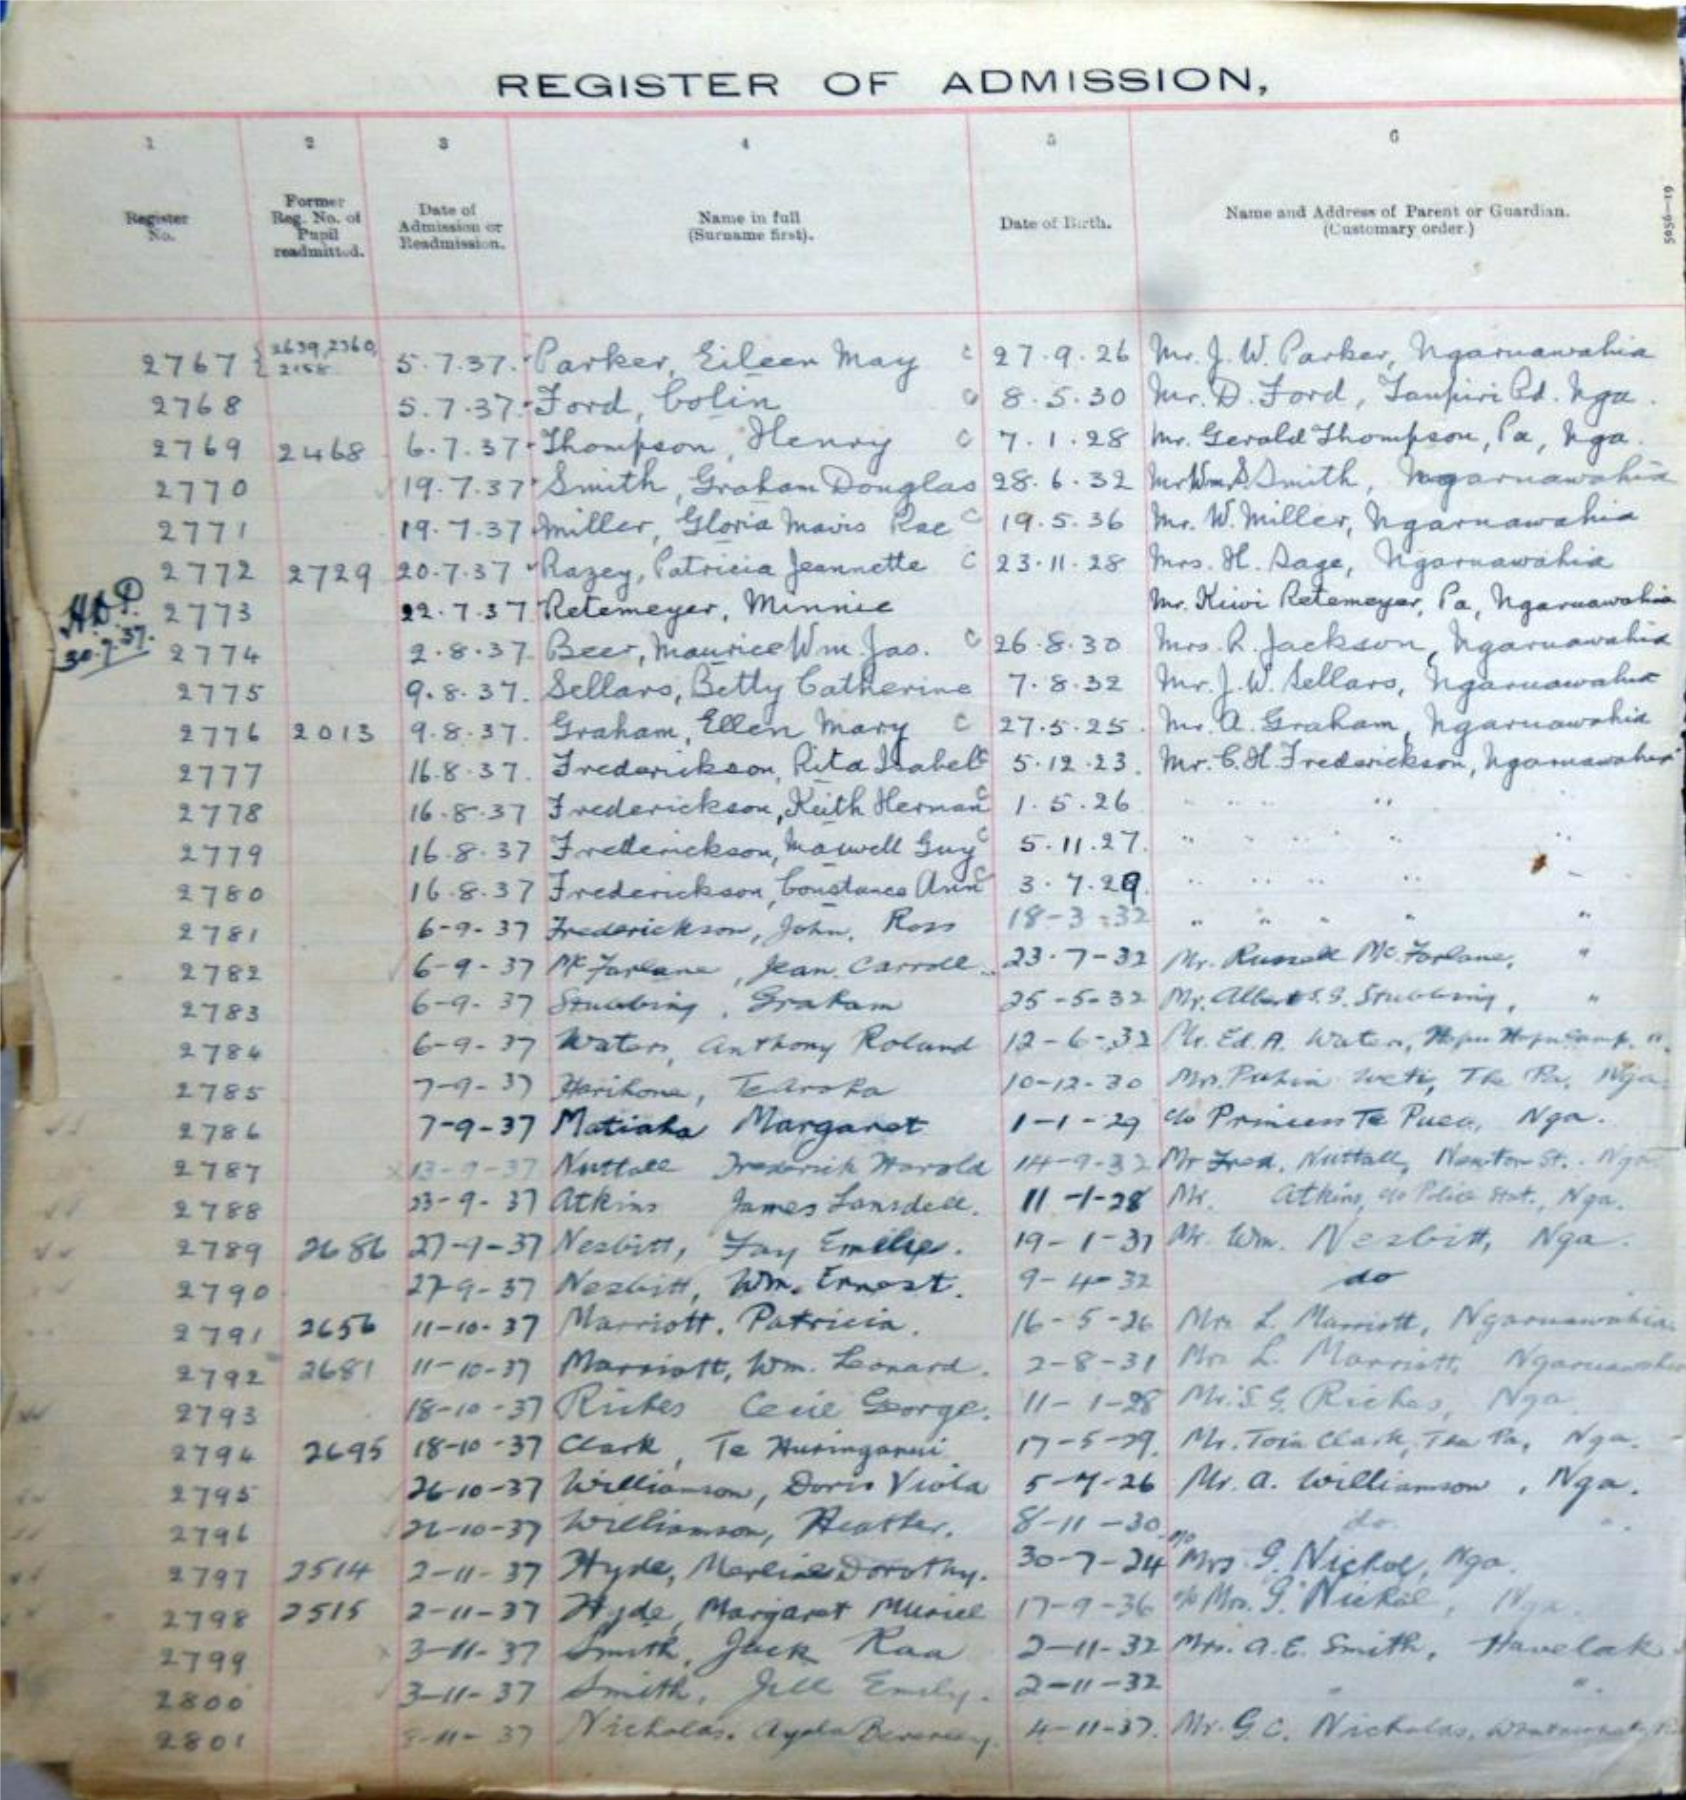 REGISTER OF ADMISSION,
1 2 3 4 5 6
Register No. Former Reg. No. of Pupil readmitted. Date of Admission or Readmission. Name in full (Surname first). Date of Birth. Name and Address of Parent or Guardian. (Customary order.)
5056—19
2767 { 2639, 2360, 2158 5.7.37. Parker, Eileen May c 27.9.26 Mr. J. W. Parker, Ngaruawahia
2768 5.7.37. Ford, Colin c 8.5.30 Mr. D. Ford, Taupiri Rd. Nga.
2769 2468 6.7.37 Thompson, Henry c 7.1.28 Mr. Gerald Thompson, Pa, Nga.
2770 19.7.37 Smith, Graham Douglas 28.6.32 Mr Wm. S. Smith, Ngaruawahia
2771 19.7.37 Miller, Gloria Mavis Rae c 19.5.36 Mr. W. Miller, Ngaruawahia
2772 2729 20.7.37 Razey, Patricia Jeannette c 23.11.28 Mrs. H. Sage, Ngaruawahia
2773 22.7.37 Retemeyer, Minnie Mr. Kiwi Retemeyer, Pa, Ngaruawahia
30.7.37.
2774 2.8.37 Beer, Maurice Wm. Jas. c 26.8.30 Mrs. R. Jackson, Ngaruawahia
2775 9.8.37. Sellars, Betty Catherine 7.8.32 Mr. J. W. Sellars, Ngaruawahia
2776 2013 9.8.37. Graham, Ellen Mary c 27.5.25. Mr. A. Graham, Ngaruawahia
2777 16.8.37. Frederickson, Rita Isabel c 5.12.23. Mr. C. H. Frederickson, Ngaruawahia
2778 16.8.37 Frederickson, Keith Herman c 1.5.26 " " " "
2779 16.8.37 Frederickson, Maxwell Guy c 5.11.27. " " " " "
2780 16.8.37 Frederickson, Constance Ann c 3.7.29. " " " " "
2781 6-9-37 Frederickson, John. Ross 18-3-32 " " " " "
2782 6-9-37 McFarlane, Jean Carroll 23-7-32 Mr. Russell McFarlane, "
2783 6-9-37 Stubbing, Graham 25-5-32 Mr. Albert S. G. Stubbing, "
2784 6-9-37 Waters, Anthony Roland 12-6-32 Mr. Ed. A. Waters, Hopu Hopu Camp. "
2785 7-9-37 Harihona, 10-12-30 The Pa, Nga.
2786 7-9-37 Matiaha Margaret 1-1-29 c/o Princess Te Puea, Nga.
2787 13-9-37 Nuttall Frederick Harold 14-9-32 Mr Fred. Nuttall, Newton St. Nga
2788 23-9-37 Atkins James Lansdell. 11-1-28 Mr. Atkins, c/o Police Stat., Nga.
2789 2686 27-9-37 Nesbitt, Fay Emilie. 19-1-31 Mr. Wm. Nesbitt, Nga.
2790 27-9-37 Nesbitt, Wm. Ernest. 9-4-32 do
2791 2656 11-10-37 Marriott. Patricia. 16-5-26 Mrs L. Marriott, Ngaruawahia
2792 2681 11-10-37 Marriott, Wm. Leonard. 2-8-31 Mrs L. Marriott, Ngaruawahia
2793 18-10-37 Riches Cecil George. 11-1-28 Mr. S. G. Riches, Nga.
2794 2695 18-10-37 Clark, Te Huringanui 17-5-29. Mr. Toia Clark, The Pa, Nga.
2795 26-10-37 Williamson, Doris Viola 5-7-26 Mr. A. Williamson, Nga.
2796 26-10-37 Williamson, Heather. 8-11-30. do. "
2797 2514 2-11-37 Hyde, Dorothy. 30-7-24 c/o Mrs. G. Nichol, Nga.
2798 2515 2-11-37 Hyde, Margaret Muriel 17-9-36 c/o Mrs. G. Nichol, Nga.
2799 3-11-37 Smith, Jack Raa 2-11-32 Mrs. A. E. Smith, Havelock
2800 3-11-37 Smith, Jill Emily. 2-11-32 " "
2801 8-11-37 Nicholas. Beverley. 4-11-37. Mr. G. C. Nicholas,